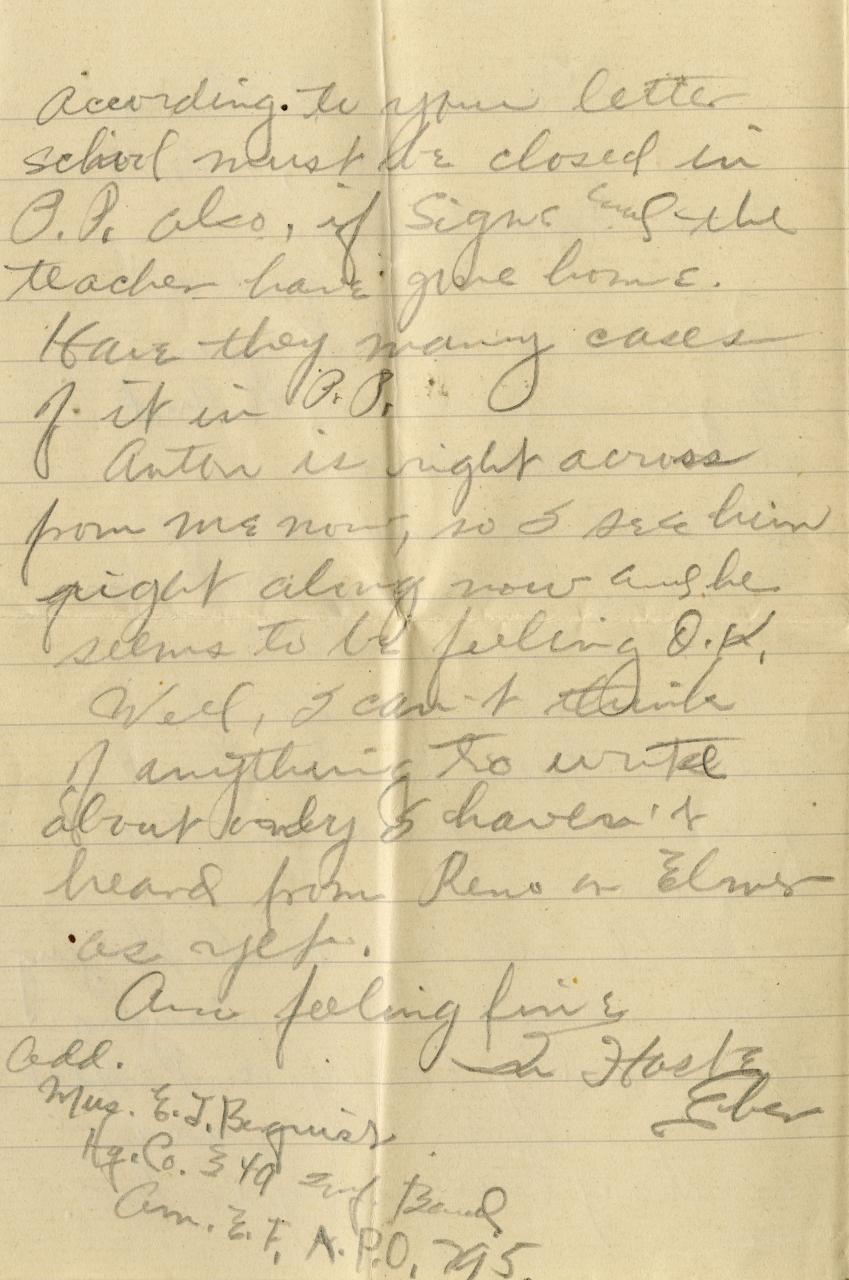 According to your letter
school must be closed in
P.P. also, if Signe and the
teacher have gone home.
Have they many cases
of it in P.P.
Anton is right across
from me now, so I see him
right along now and he
seems to be feeling O.K.
Well, I can't think
of anything to write
about only I haven't
heard from Reno or Elmer
as yet.
Am feeling fine
In Haste
Eber
Add.
Mus. E. J. Berquist
Hq. Co. 349 Inf. Band
Am. E. F, A.P.O, 795.